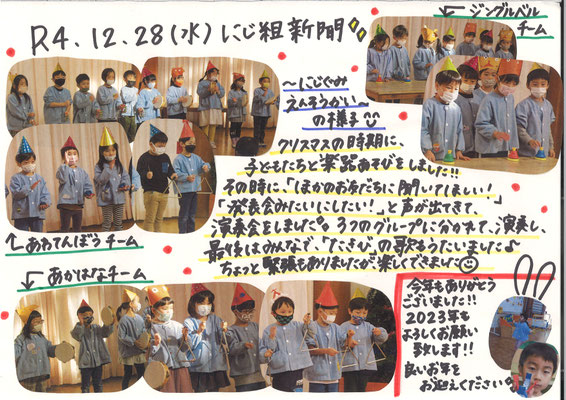 R4.12.28(水)にじ組新聞
ジングルベル
チーム
～にじぐみ
えんそうかい～
の様子
クリスマスの時期に、
子どもたちと楽器あそびをしました!!
その時に、「ほかのお友だちに聞いてほしい!
「発表会みたいにしたい!」と声が出てきて、
演奏会をしました。3つのグループに分かれて、演奏し、
最後はみんなで、「たきび」の歌もうたいました♪
ちょっと緊張もありましたが、楽しくできました
あおてんぼうチーム
あかはなチーム
今年もありがとう
ございました!!
2023年も
よろしくお願い
致します!!
良いお年を
お迎えください。